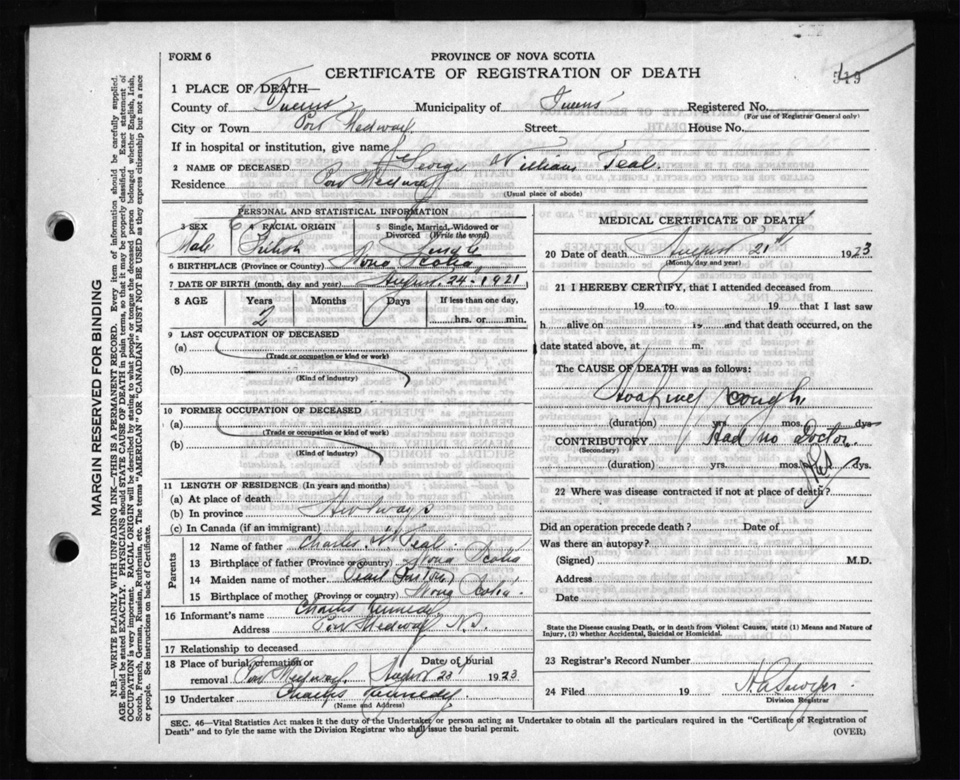 FORM 6
PROVINCE OF NOVA SCOTIA
CERTIFICATE OF REGISTRATION OF DEATH
519
1 PLACE OF DEATH—
County of Queens Municipality of Queens Registered No.
(For use of Registrar General only)
City or Town Port Medway Street House No.
If in hospital or institution, give name
2 NAME OF DECEASED George William Teal
Residence Port Medway
(Usual place of abode)
PERSONAL AND STATISTICAL INFORMATION
3 SEX 4 RACIAL ORIGIN 5 Single, Married, Widowed or
Divorced (Write the word)
Male British Single
6 BIRTHPLACE (Province or Country) Nova Scotia
7 DATE OF BIRTH (month, day and year) August 24 - 1921
8 AGE Years Months Days If less than one day,
2 hrs. or min.
9 LAST OCCUPATION OF DECEASED
(a)
(Trade or occupation or kind of work)
(b)
(Kind of industry)
10 FORMER OCCUPATION OF DECEASED
(a)
(Trade or occupation or kind of work)
(b)
(Kind of industry)
11 LENGTH OF RESIDENCE (In years and months)
(a) At place of death
(b) In province
(c) In Canada (if an immigrant)
Parents
12 Name of father Charles Teal
13 Birthplace of father (Province or country) Nova Scotia
14 Maiden name of mother Pearl
15 Birthplace of mother (Province or country) Nova Scotia
16 Informant's name Charles Kennedy
Address Port Medway N.S.
17 Relationship to deceased
18 Place of burial, cremation or Date of burial
removal Port Medway August 23 1923
19 Undertaker Charles Kennedy
(Name and Address)
MEDICAL CERTIFICATE OF DEATH
20 Date of death August 21st 1923
(Month, day and year)
21 I HEREBY CERTIFY, that I attended deceased from
19 to 19 that I last saw
h alive on 19 and that death occurred, on the
date stated above, at m.
The CAUSE OF DEATH was as follows:
Hooping Cough
(duration) yrs. mos. dys
CONTRIBUTORY Had no Doctor
(Secondary)
(duration) yrs. mos. dys.
22 Where was disease contracted if not at place of death?
Did an operation precede death? Date of
Was there an autopsy?
(Signed) M.D.
Address
Date
State the Disease causing Death, or in death from Violent Causes, state (1) Means and Nature of
Injury, (2) whether Accidental, Suicidal or Homicidal.
23 Registrar's Record Number
24 Filed 19
Division Registrar
SEC. 46—Vital Statistics Act makes it the duty of the Undertaker or person acting as Undertaker to obtain all the particulars required in the "Certificate of Registration of
Death" and to fyle the same with the Division Registrar who shall issue the burial permit.
(OVER)
MARGIN RESERVED FOR BINDING
N.B.—WRITE PLAINLY WITH UNFADING INK—THIS IS A PERMANENT RECORD. Every item of information should be carefully supplied.
AGE should be stated EXACTLY. PHYSICIANS should STATE CAUSE OF DEATH in plain terms, so that it may be properly classified. Exact statement of
OCCUPATION is very important. RACIAL ORIGIN will be described by stating to what people or tongue the deceased person belonged whether English, Irish,
Scotch, French, German, Russian, Ruthenian, etc. The terms "AMERICAN" OR "CANADIAN" MUST NOT BE USED as they express citizenship but not a race
or people. See instructions on back of Certificate.